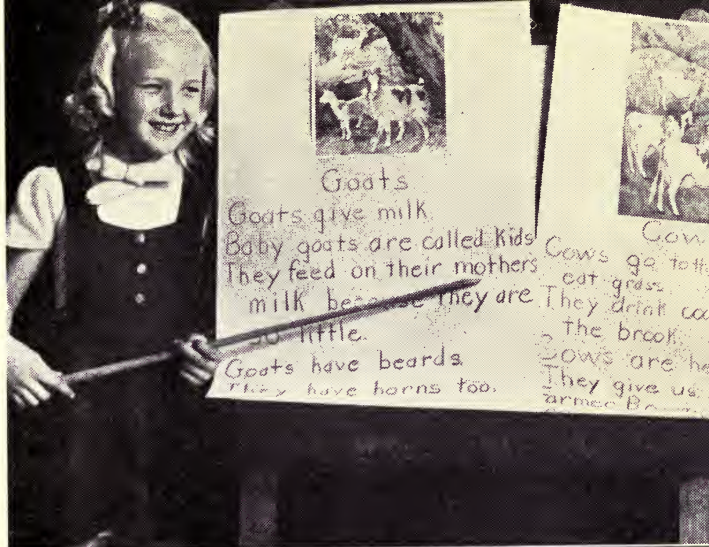 Goats
Goats give milk.
Baby goats are called kids
They feed on their mothers
milk because they are
so little.
Goats have beards.
They have horns too.
Cows go to
eat grass.
They drink
the brook.
Cows are
They give us